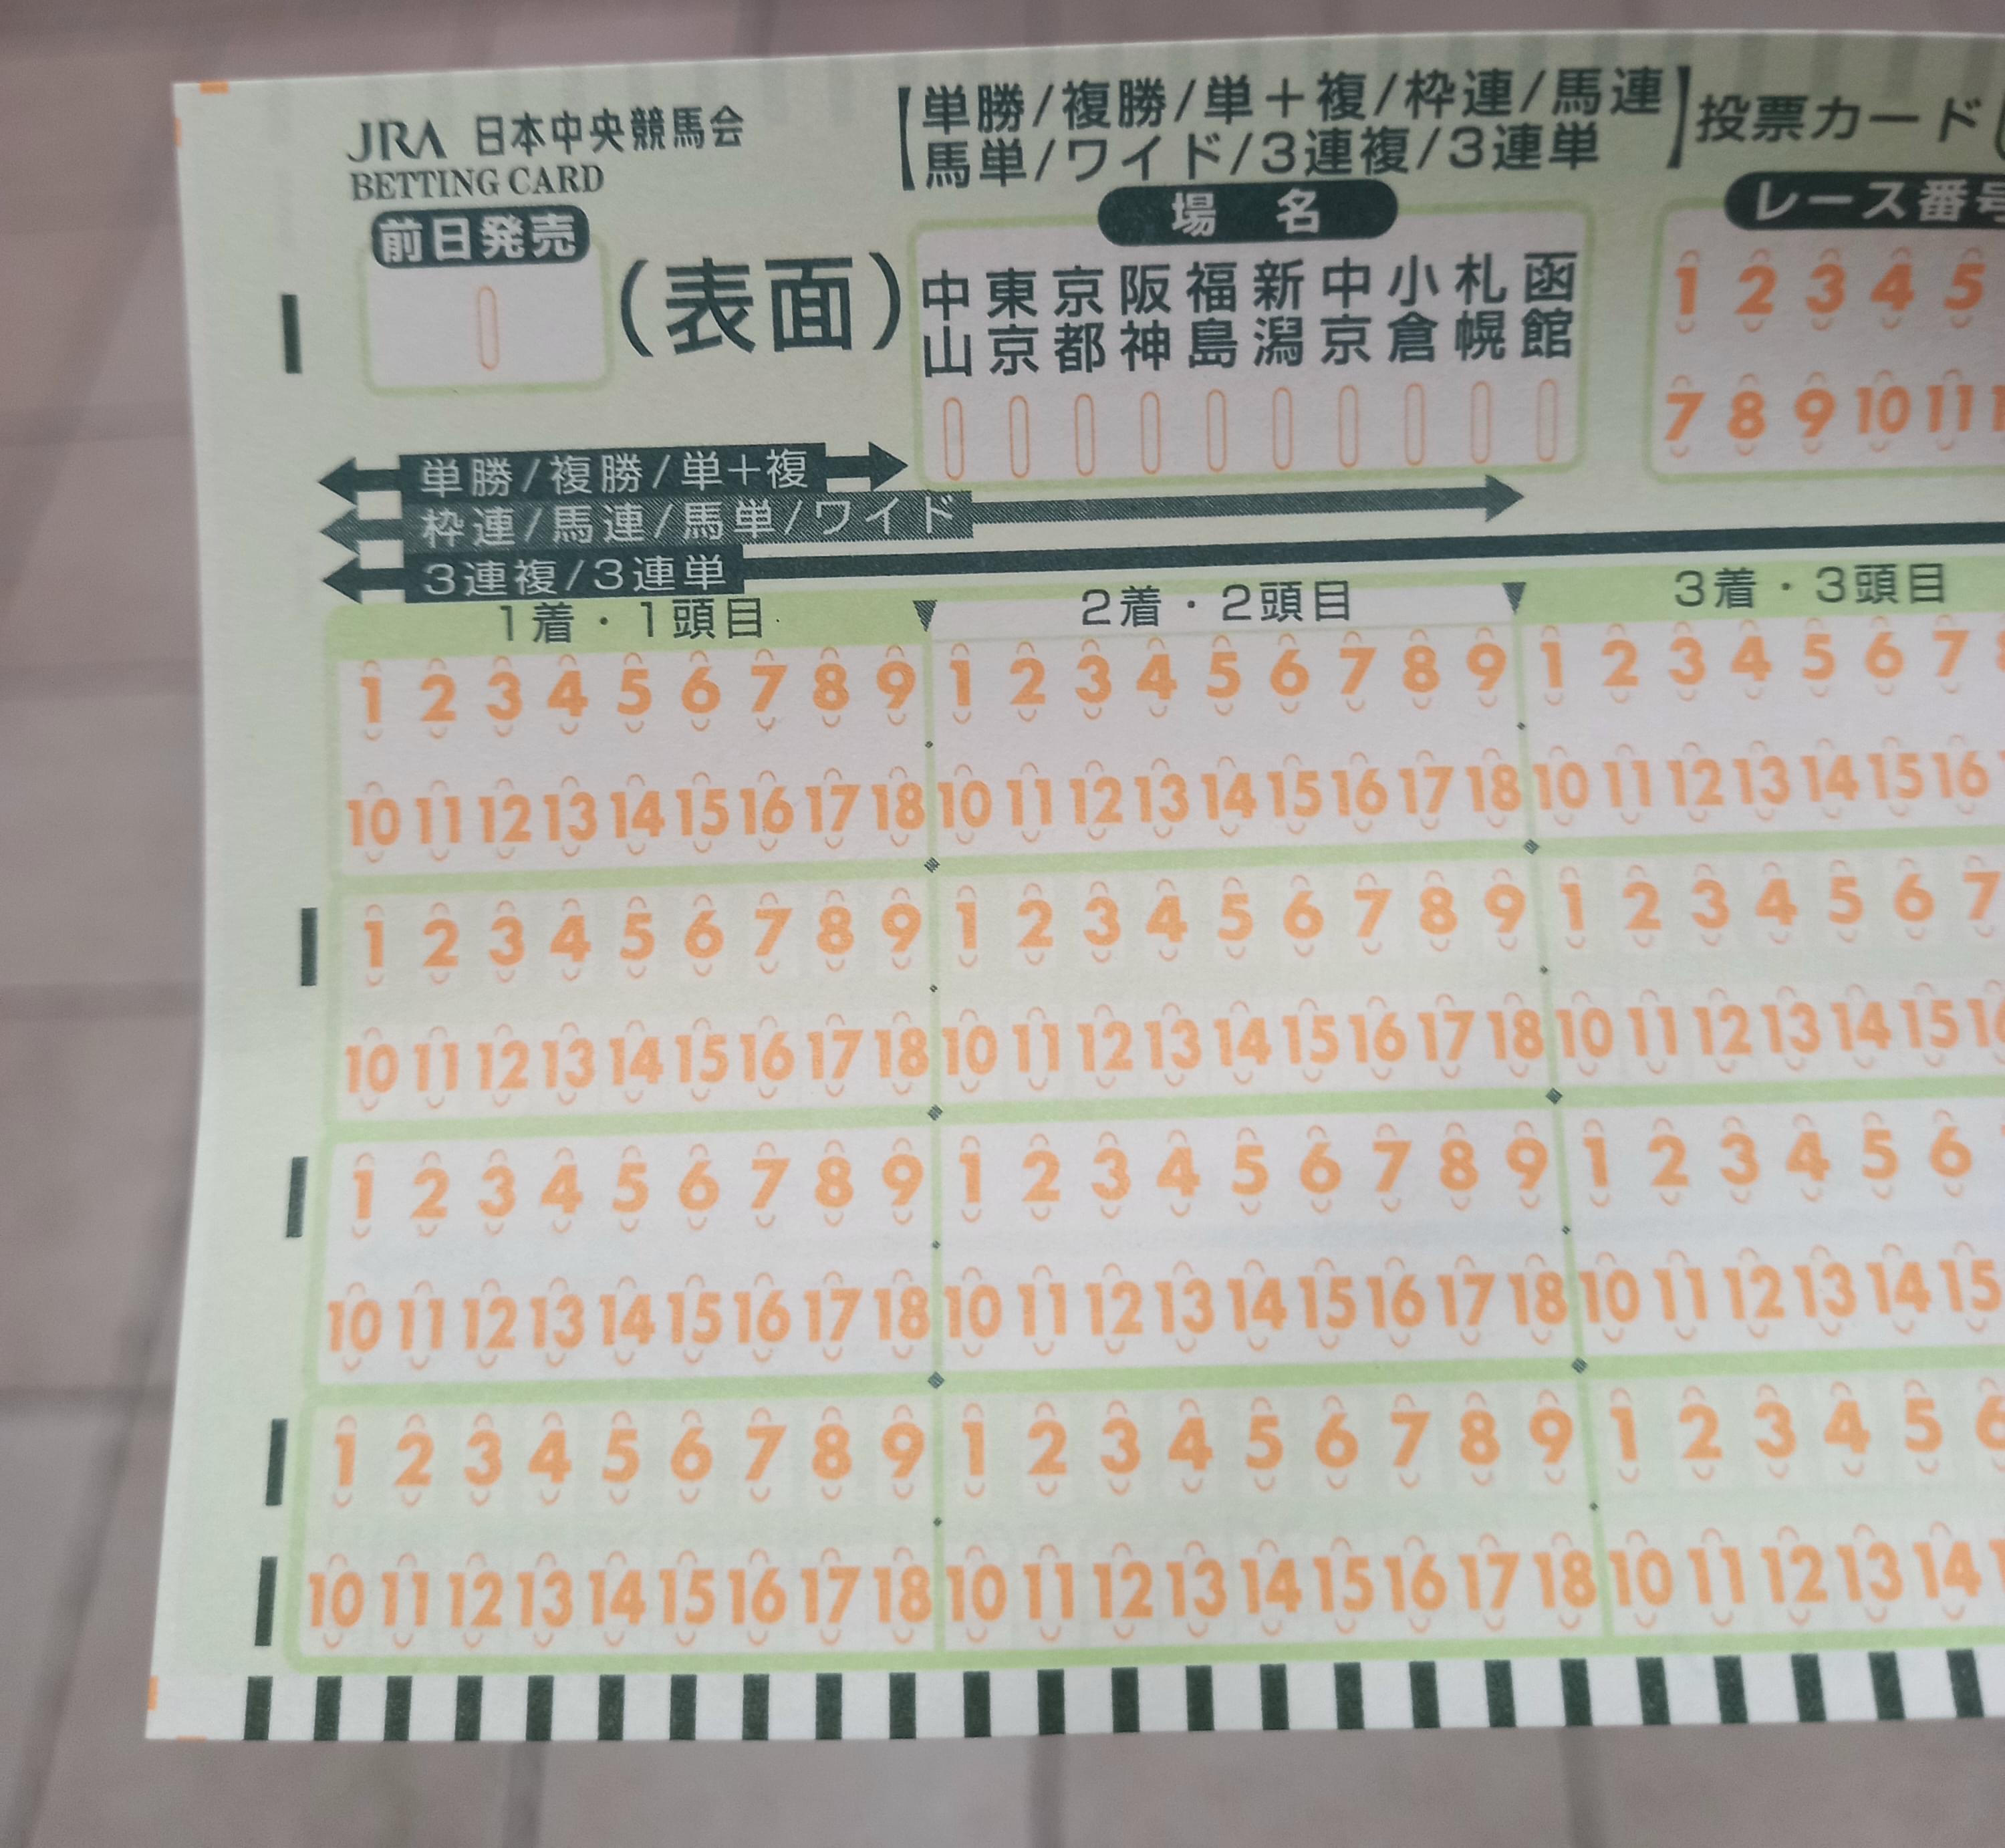 JRA 日本中央競馬会
BETTING CARD
【単勝/複勝/単+複/枠連/馬連
馬単/ワイド/3連複/3連単】
投票カード
前日発売
(表面)
場名
中山 東京 京都 阪神 福島 新潟 中京 小倉 札幌 函館
レース番号
1 2 3 4 5
7 8 9 10 11
単勝/複勝/単+複
枠連/馬連/馬単/ワイド
3連複/3連単
1着・1頭目 2着・2頭目 3着・3頭目
1 2 3 4 5 6 7 8 9 1 2 3 4 5 6 7 8 9 1 2 3 4 5 6 7
10 11 12 13 14 15 16 17 18 10 11 12 13 14 15 16 17 18 10 11 12 13 14 15 16
1 2 3 4 5 6 7 8 9 1 2 3 4 5 6 7 8 9 1 2 3 4 5 6 7
10 11 12 13 14 15 16 17 18 10 11 12 13 14 15 16 17 18 10 11 12 13 14 15 16
1 2 3 4 5 6 7 8 9 1 2 3 4 5 6 7 8 9 1 2 3 4 5 6
10 11 12 13 14 15 16 17 18 10 11 12 13 14 15 16 17 18 10 11 12 13 14 15
1 2 3 4 5 6 7 8 9 1 2 3 4 5 6 7 8 9 1 2 3 4 5 6
10 11 12 13 14 15 16 17 18 10 11 12 13 14 15 16 17 18 10 11 12 13 14